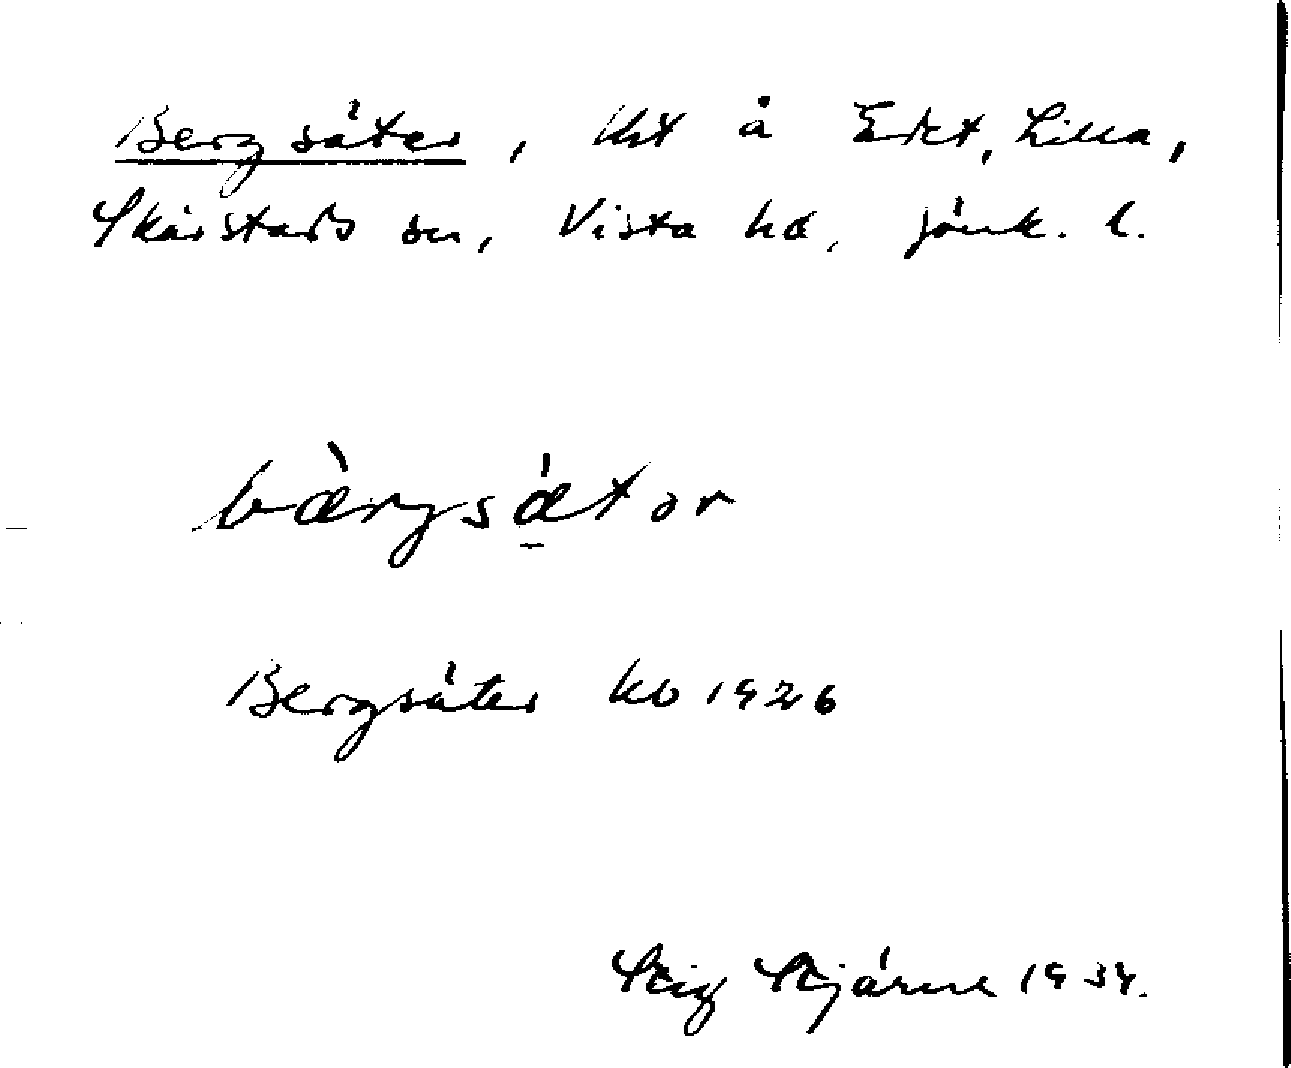 Bergsäter, lht å Ekt, Lilla,
Skärstads sn, Vista hd, Jönk. l.
bæ̀rgsǽ̠tər
Bergsäter kb 1926
Stig Stjärne 1934.